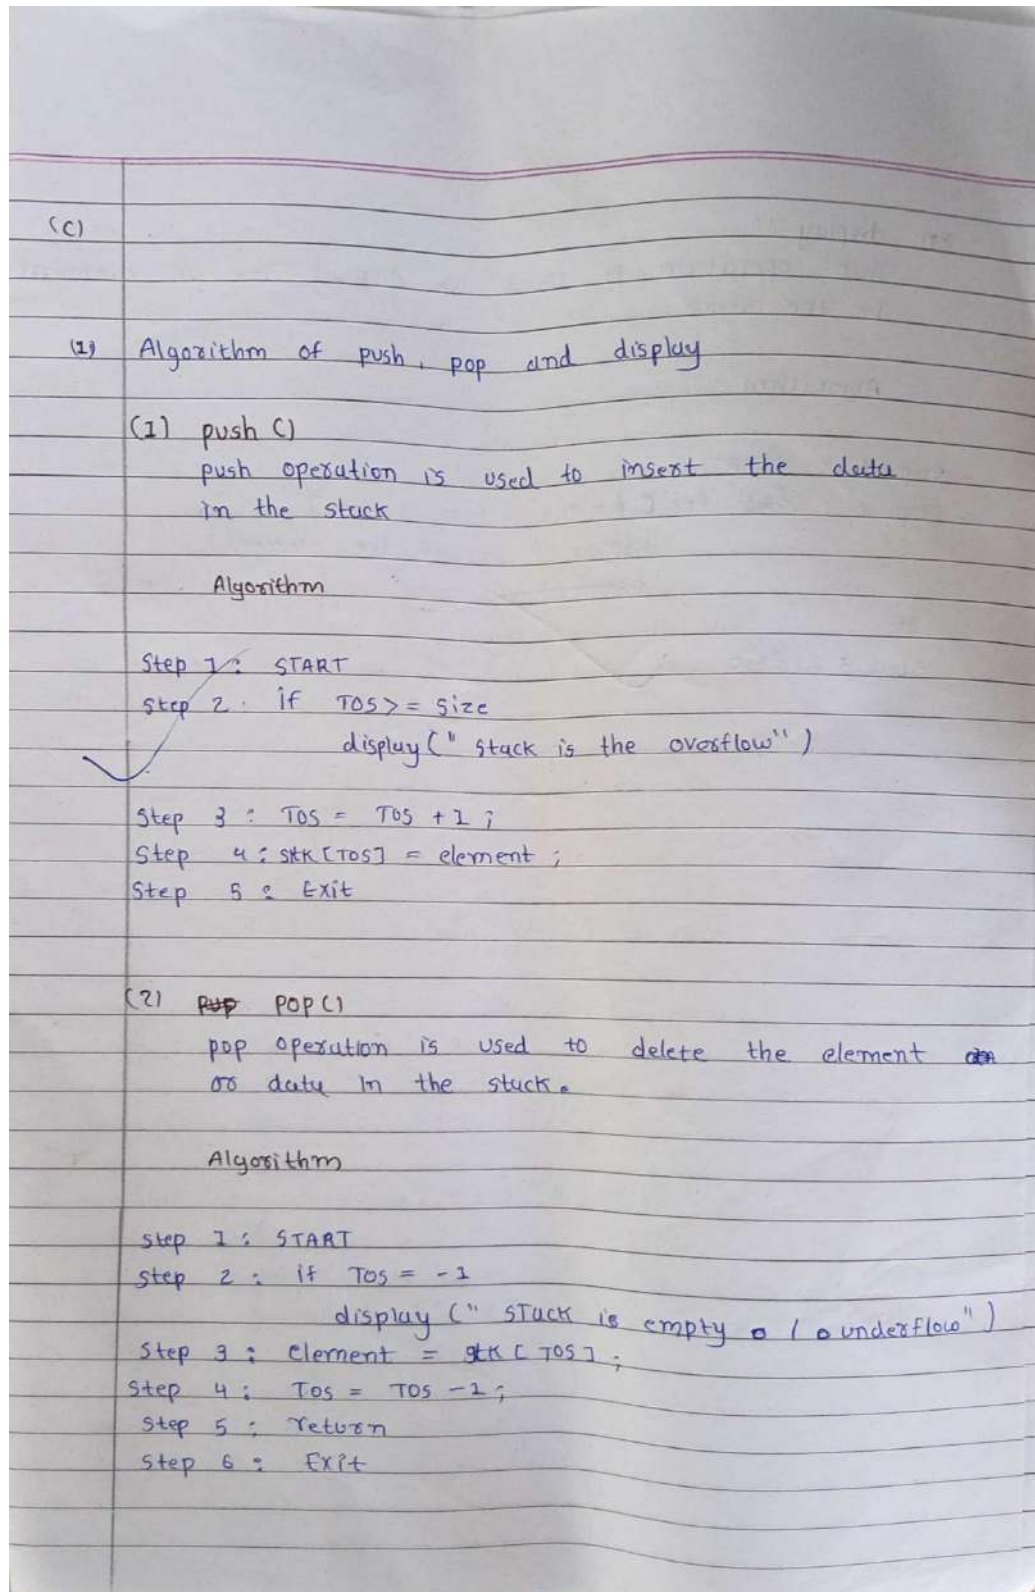 (C)
(1) Algorithm of push, pop and display
(1) push ()
push operation is used to insert the data
in the stack
Algorithm
Step 1: START
Step 2. if TOS >= size
display (" stack is the overflow" )
Step 3 : TOS = TOS + 1 ;
Step 4 : stk [TOS] = element ;
Step 5 : Exit
(2) POP ()
pop operation is used to delete the element
or data in the stack.
Algorithm
Step 1 : START
Step 2 : if TOS = -1
display (" STack is empty / underflow" )
Step 3 : element = stk [ TOS ] ;
Step 4 : TOS = TOS -1 ;
Step 5 : return
Step 6 : Exit